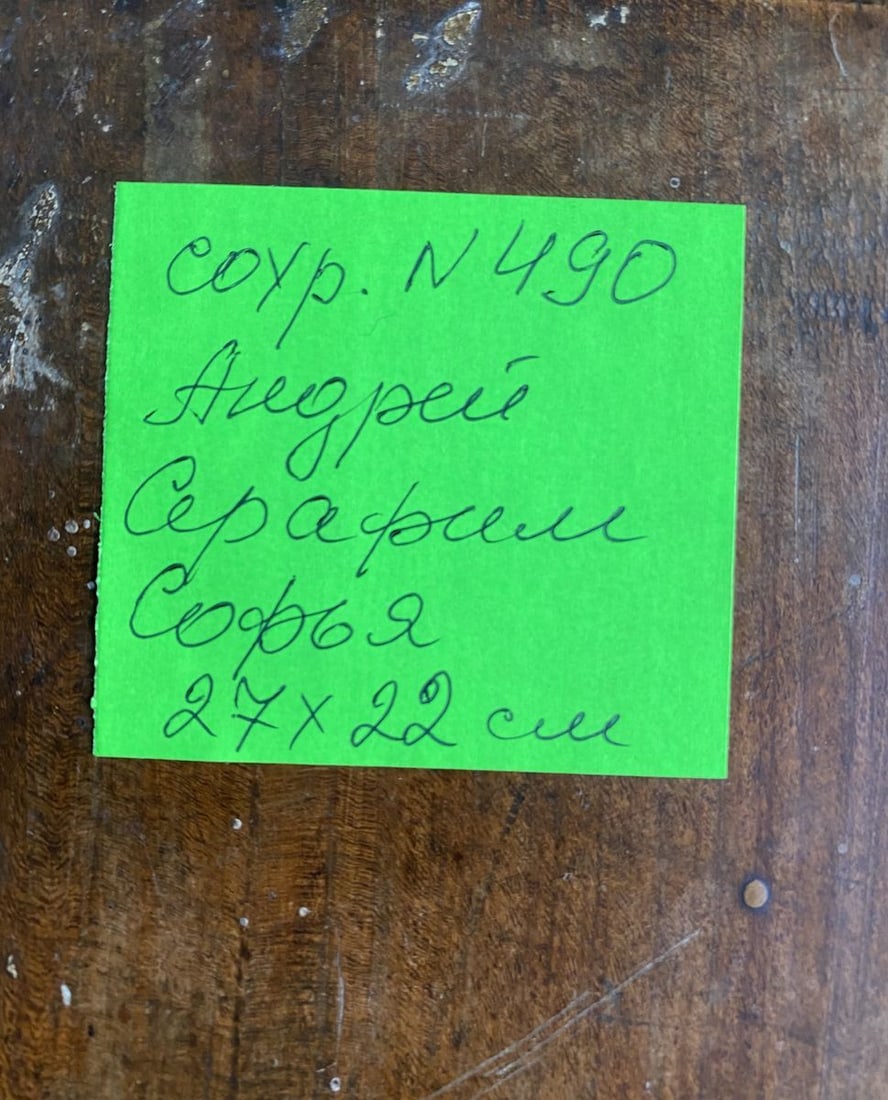 сохр. N 490
Андрей
Серафим
Софья
27 x 22 см